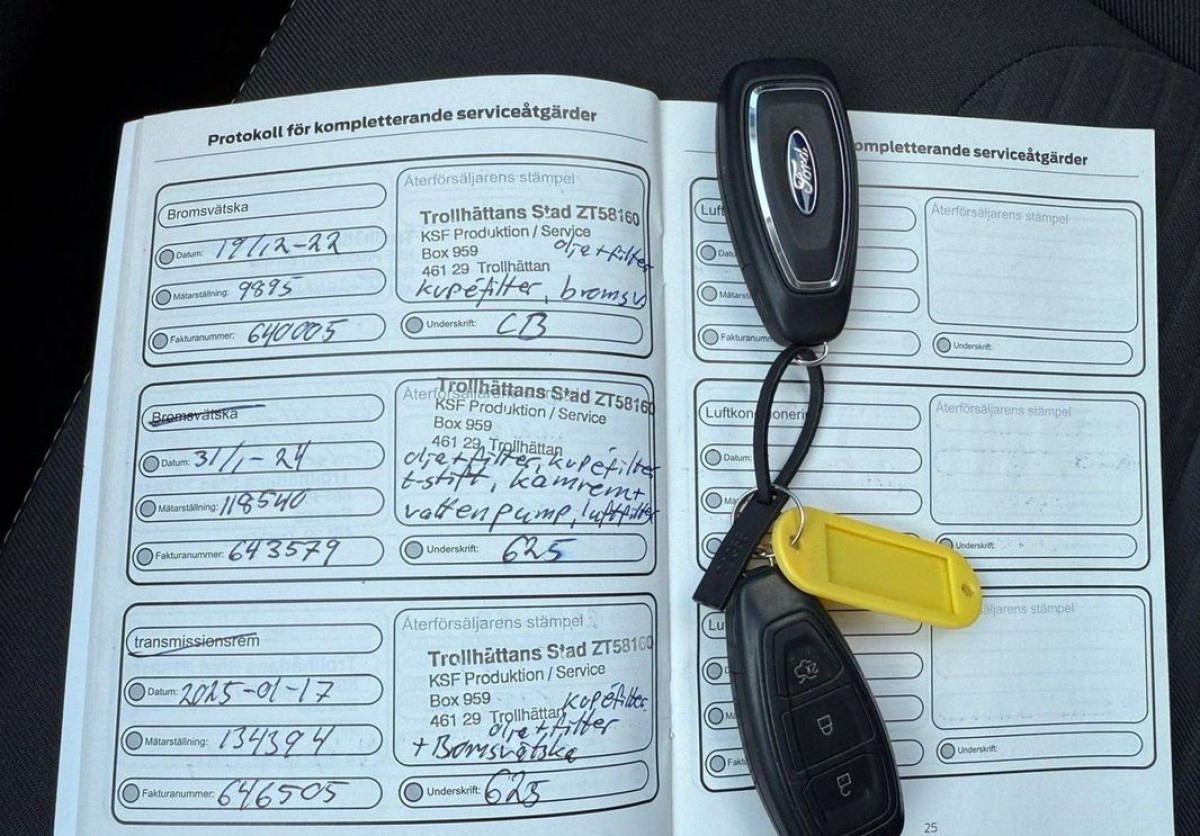 Protokoll för kompletterande serviceåtgärder
Bromsvätska
Datum: 19/12-22
Mätarställning: 9895
Fakturanummer: 640005
Återförsäljarens stämpel
Trollhättans Stad ZT58160
KSF Produktion / Service
Box 959
olja + filter
461 29 Trollhättan
kupéfilter, bromsv
Underskrift: CB
Bromsvätska
Datum: 31/1-24
Mätarställning: 118540
Fakturanummer: 643579
Återförsäljarens stämpel
Trollhättans Stad ZT58160
KSF Produktion / Service
Box 959
461 29 Trollhättan
olja + filter, kupéfilter
t-stift, kamrem +
vattenpump, luftfilter
Underskrift: 625
transmissionsrem
Datum: 2025-01-17
Mätarställning: 134394
Fakturanummer: 646505
Återförsäljarens stämpel
Trollhättans Stad ZT58160
KSF Produktion / Service
Box 959
kupéfilter
461 29 Trollhättan
olja + filter
+ Bromsvätska
Underskrift: 625
ompletterande serviceåtgärder
Luf
Dat
Mätarst
Fakturanum
Återförsäljarens stämpel
Underskrift:
Ford
Luftkon
Datum:
Mä
Återförsäljarens stämpel
Underskrift:
Lu
Fakt
äljarens stämpel
Underskrift:
25